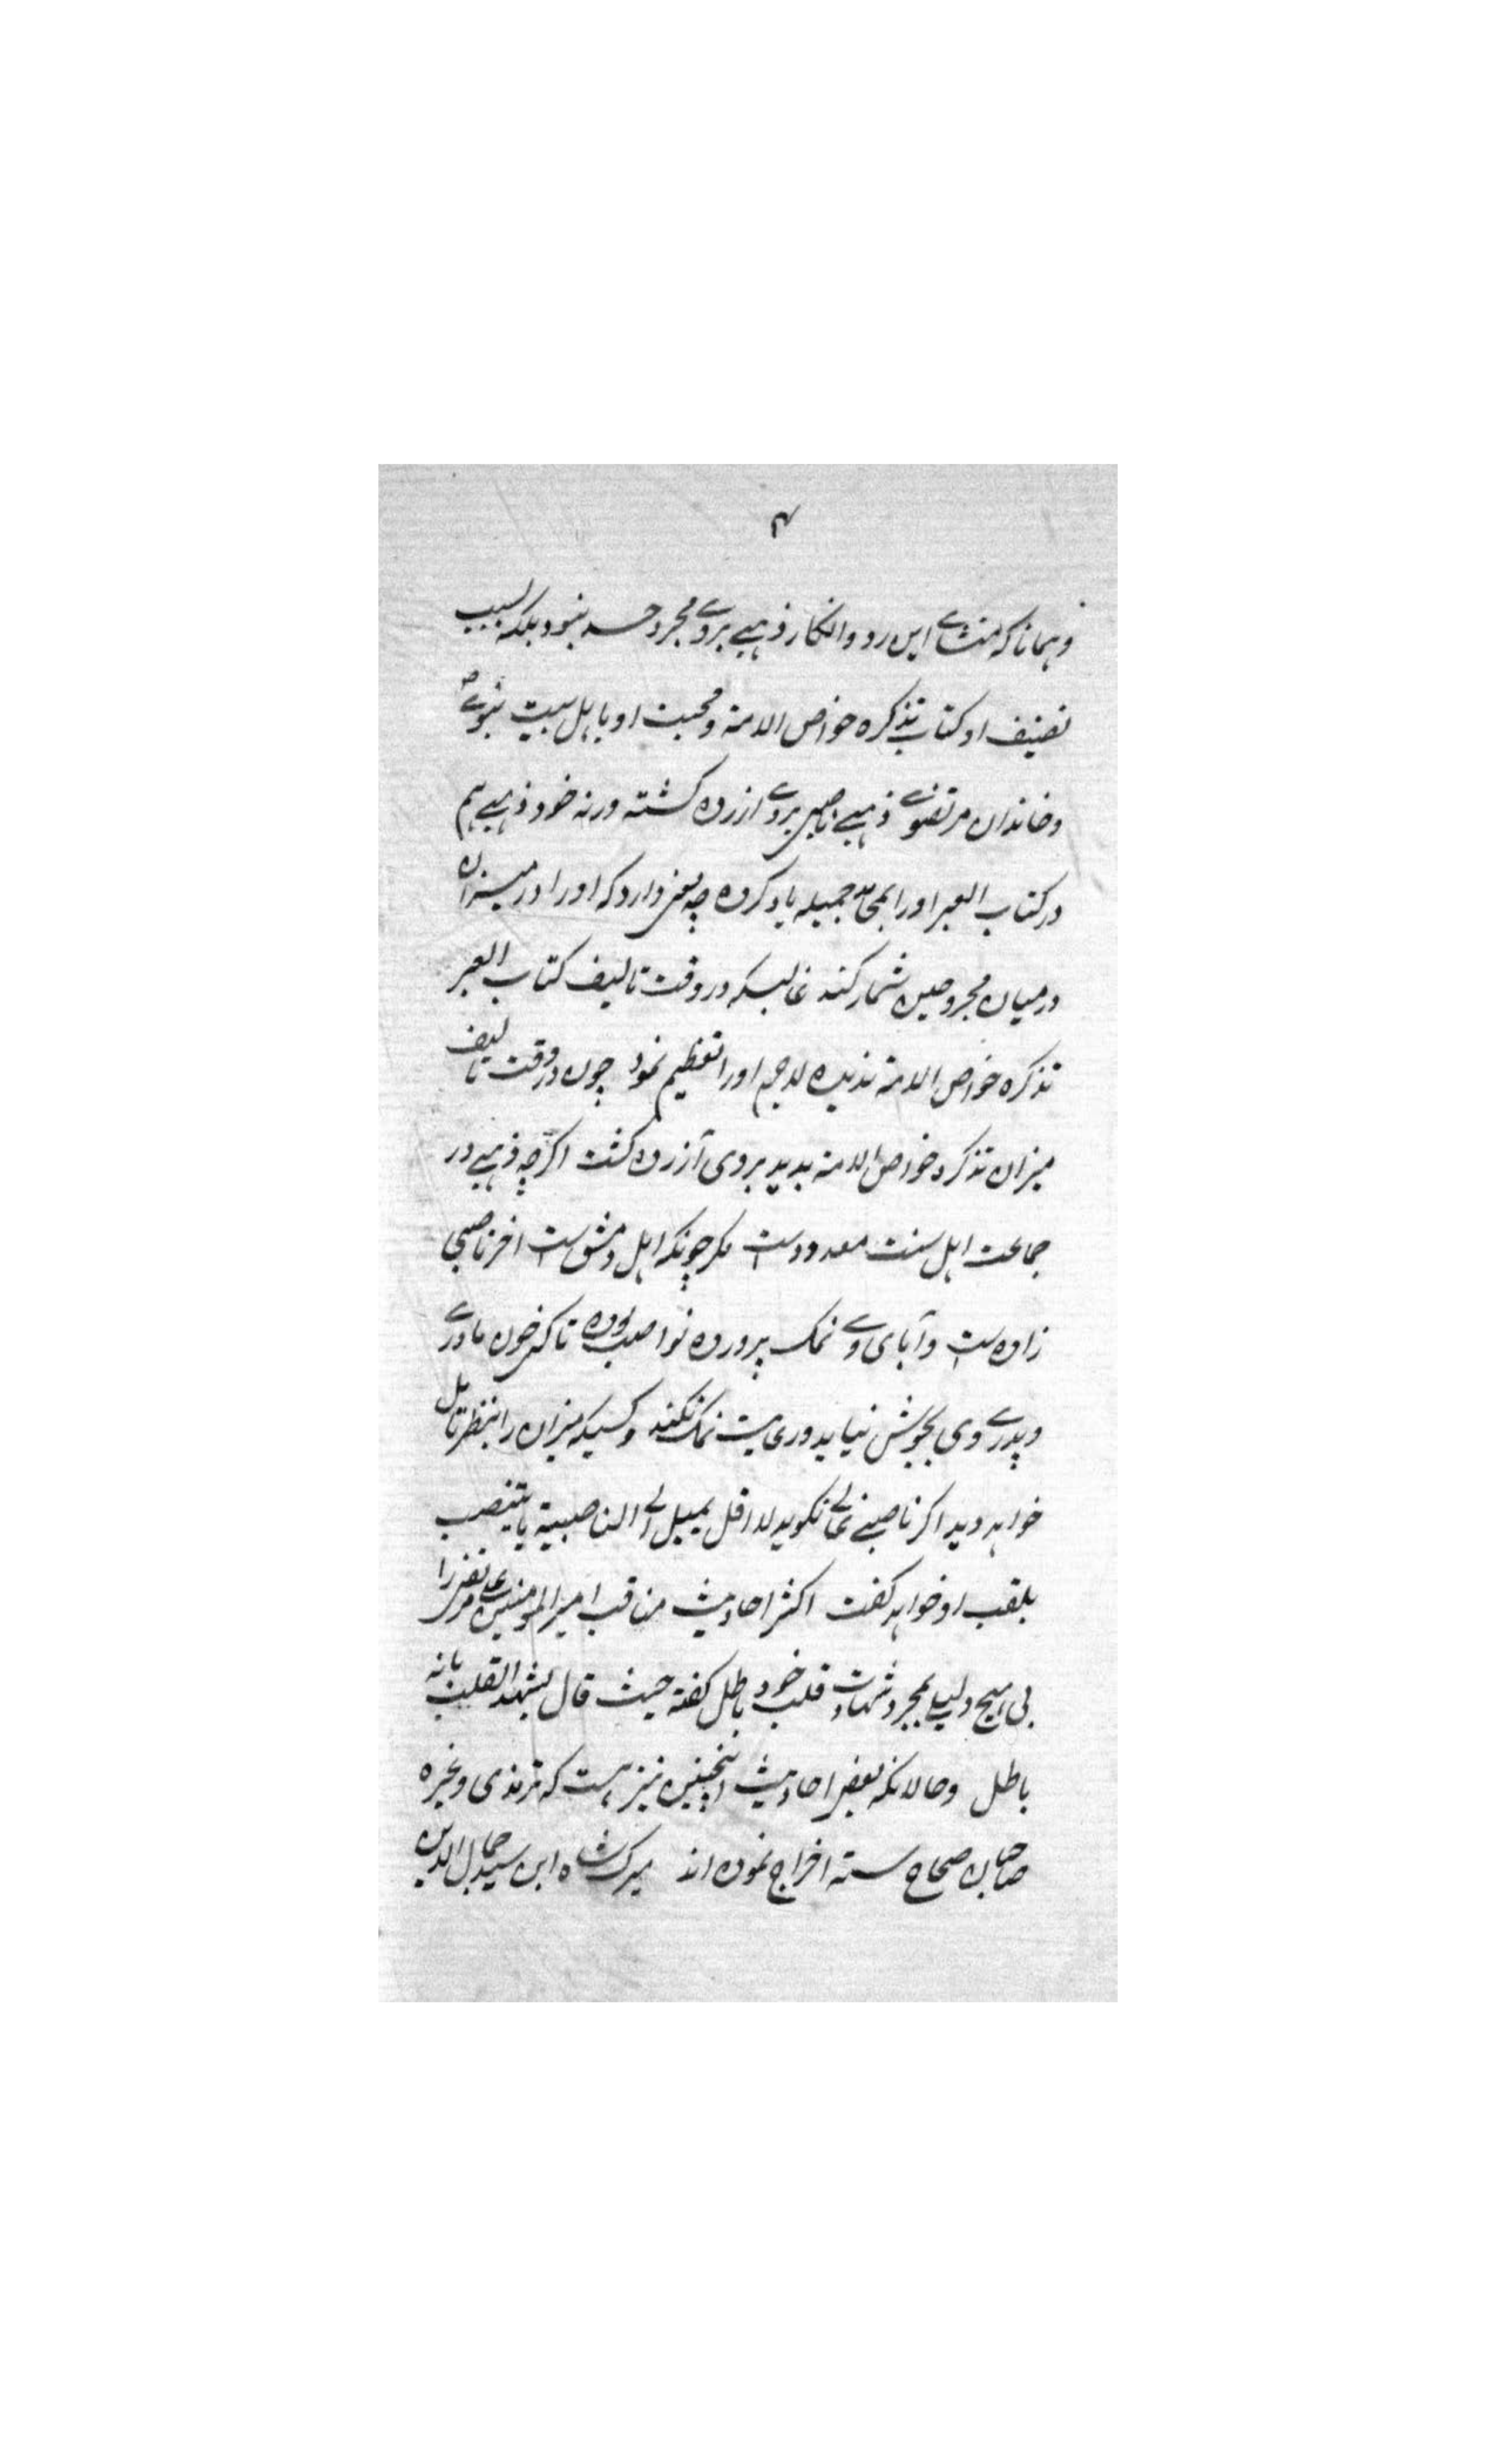 ۴
وهمانا که منشای این رد و انکار ذهبی بروی مجرد حسد نبود بلکه بسبب
تصنیف او کتاب تذکره خواص الامة و محبت او باهل بیت نبوی ص
و خاندان مرتضوی ذهبی ناصبی بروی ازرده کشته ورنه خود ذهبی هم
در کتاب العبر اورا بمحامد جمیله یاد کرده چه معنی دارد که اورا در میزان
درمیان مجروحین شمار کند غالبکه در وقت تالیف کتاب العبر
تذکره خواص الامة ندیده لاجرم اورا تعظیم نمود چون در وقت تالیف
میزان تذکره خواص الامة بدید بروی آزرده کشت اکرچه ذهبی در
جماعت اهل سنت معدودست مکر چونکه اهل دمشق ست اخر ناصبی
زاده ست و آبای وی نمک پرورده نواصب بوده تا کی خون مادری
و پدری وی بجوش نیاید و رعایت نمک نکند و کسیکه میزان را بنظر تامل
خواهد دید اکر ناصبی غالی نکوید لا اقل یمیل الی الناصبیة یا یتنصب
بلقب او خواهد کفت اکثر احادیث مناقب امیر المومنین علی مرتضی را
بی هیچ دلیلی بمجرد شهادت قلب خود باطل کفته حیث قال یشهد القلب بانه
باطل وحالانکه بعض احادیث اینچنین نیز هست که ترمذی و غیره
صاحبان صحاح سته اخراج نموده اند میرک شاه ابن سید جمال الدین